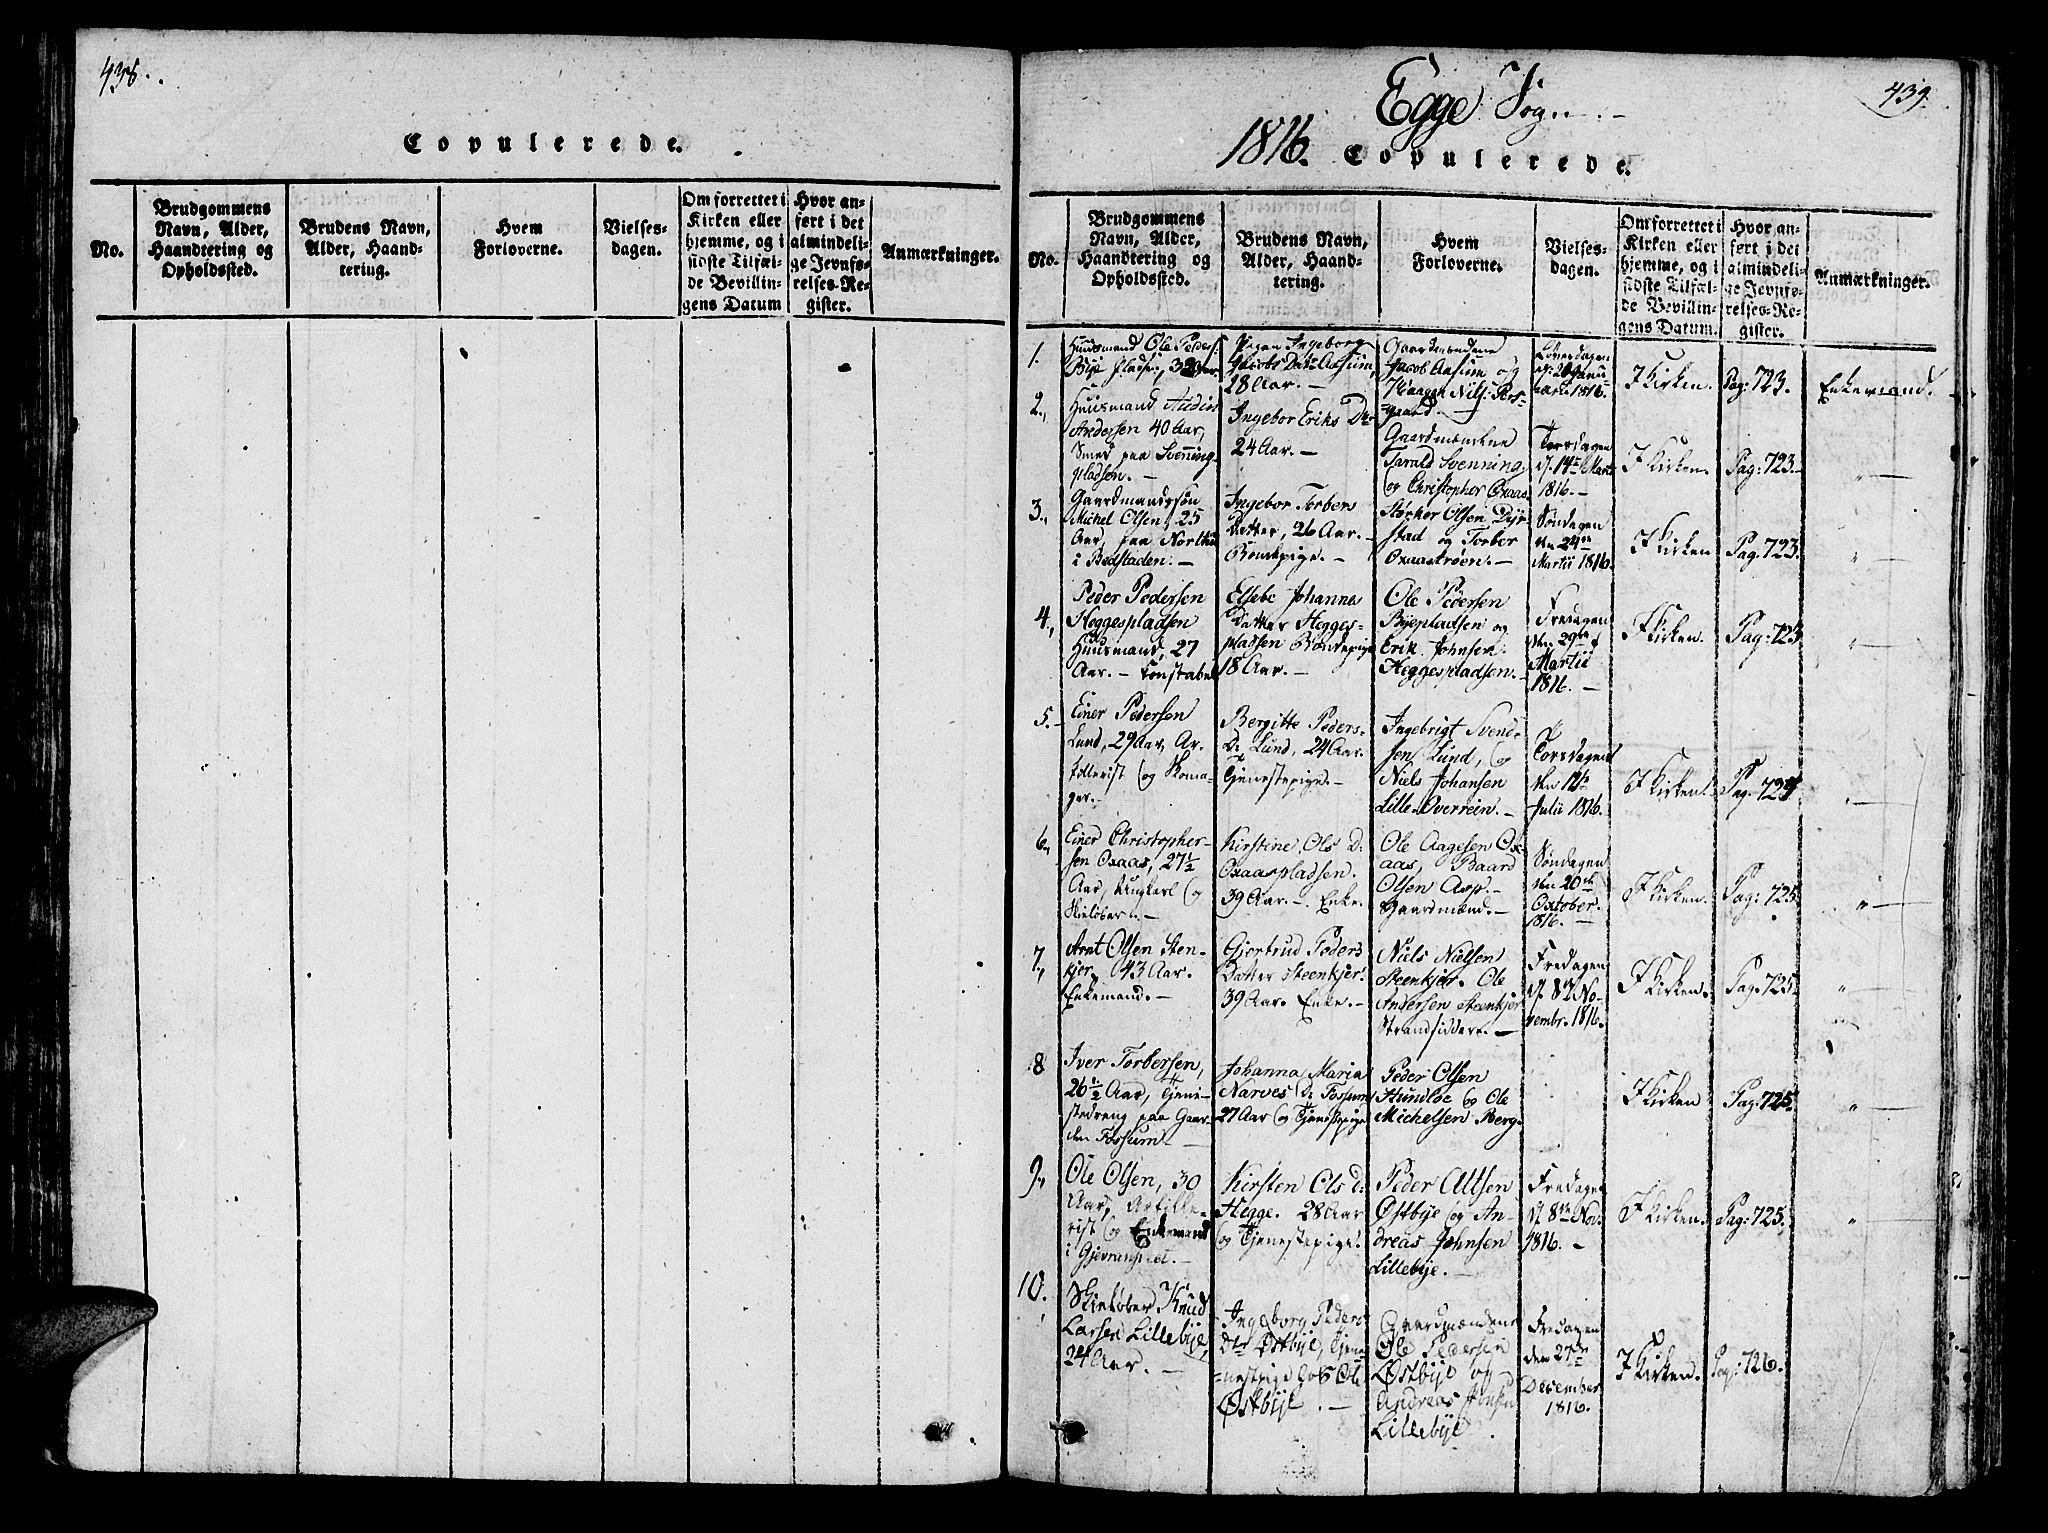 438.
Copulerede.
No.
Brudgommens
Navn, Alder,
Haandtering og
Opholdssted.
Brudens Navn,
Alder, Haand-
tering.
Hvem
Forloverne.
Vielses-
dagen.
Om forrettet i
Kirken eller
hjemme, og i
sidste Tilfæl-
de Bevillin-
gens Datum
Hvor an-
ført i det
almindeli-
ge Jevnfø-
relses-Re-
gister.
Anmærkninger.
Egge Sogn.
439.
1816. Copulerede.
No.
Brudgommens
Navn, Alder,
Haandtering og
Opholdssted.
Brudens Navn,
Alder, Haand-
tering.
Hvem
Forloverne.
Vielses-
dagen.
Om forrettet i
Kirken eller
hjemme, og i
sidste Tilfæl-
de Bevillin-
gens Datum.
Hvor an-
ført i det
almindeli-
ge Jevnfø-
relses-Re-
gister.
Anmærkninger.
1.
Huusmand Ole Peders:
Bye pladsen,
Pigen Ingeborg
Jacobs Datr Aasum,
28 Aar. —
Gaardmændene
Jacob Aasum og
Haagen Nils:
Løverdagen
1816.
I Kirken.
Pag: 723.
Enkemand.
2.,
Huusmand Audin
Andersen 40 Aar,
Smed paa Svenning
pladsen. —
Ingebor Eriks Dr
24 Aar. —
Gaardmændene
Tarald Svenning,
og Christopher Oxaas
Torsdagen
d. 14de Marti
1816. —
I Kirken.
Pag: 723. —
" —
3.,
Gaardmandssøn
Michel Olsen, 25
Aar, paa
i Bedstaden. —
Ingebor Torbers
Datter, 26 Aar. —
Bondepige. —
Størker Olsen Dyr-
stad og Torber
Oxaastrøen. —
Søndagen
den 24de
Martii 1816.
I Kirken
Pag: 723.
" —
4.,
Peder Pedersen
Heggespladsen
Huusmand, 27
Aar. — Constabel
Elsebe Johanna
Datter Hegges-
pladsen Bondepige
18 Aar. —
Ole Pedersen
Byepladsen og
Erik Johnsen
Heggespladsen. —
Fredagen
den 29de
Martii
1816. —
I Kirken.
Pag: 725
" —
5. —
Einer Pedersen
Lund, 29 Aar, Ar-
tollerist og Skoma-
ger. —
Bergitte Peders-
Dr Lund, 24 Aar.
Tjenestepige. —
Ingebrigt Svend-
sen Lund, og
Niels Johansen
Lille-Overrein. —
Torsdagen
Julii 1816.
I Kirken.
" —
6.,
Einer Christopher-
sen Oxaas, 27½
Aar, Ungkarl og
Skieløber. —
Kirstine Ols D:
Oxaaspladsen.
39 Aar. — Enke.
Ole Aagesen Ox-
aas, Baard
Olsen Asp. —
Gaardmænd. —
Søndagen
den 20de
October.
1816. —
I Kirken.
Pag: 725
" —
7.,
Arnt Olsen Sten-
kjer, 43 Aar.
Enkemand. —
Gjertrud Peders
Datter Steenkjer.
39 Aar. Enke. —
Niels Nielsen
Steenkjer. Ole
Andersen Steenkjer
Strandsiddere. —
Fredagen
d. 8de No-
vembr. 1816.
I Kirken.
Pag: 725.
" —
8
Iver Torbersen,
26½ Aar, Tjene-
stedreng paa Gaar-
den Fossum. —
Johanna Maria
Narves D: Fossum
27 Aar og Tjenestepige
Peder Olsen
Hundloe og Ole
Michelsen Berg.
I Kirken
Pag: 725.
" —
9.,
Ole Olsen, 30
Aar, Artille-
rist og Enkemand
i —
Kirsten Ols D:
Hegge. 28 Aar
og Tjenestepige.
Peder Altsen
Østbye og An-
dreas Johnsen
Lillebye. —
Fredagen
d. 8de Nov.
1816. —
I Kirken.
Pag: 725.
" —
10.
Skieløber Knud
Larsen Lillebye,
24 Aar. —
Ingeborg Peders
Dtr Østbye, Tjene-
nestepige hos Ole
Østbye. —
Gaardmændene
Ole Pedersen
Østbye og
Andreas
Lillebye.
Fredagen
den 27de
December
1816.
I Kirken.
Pag: 726.